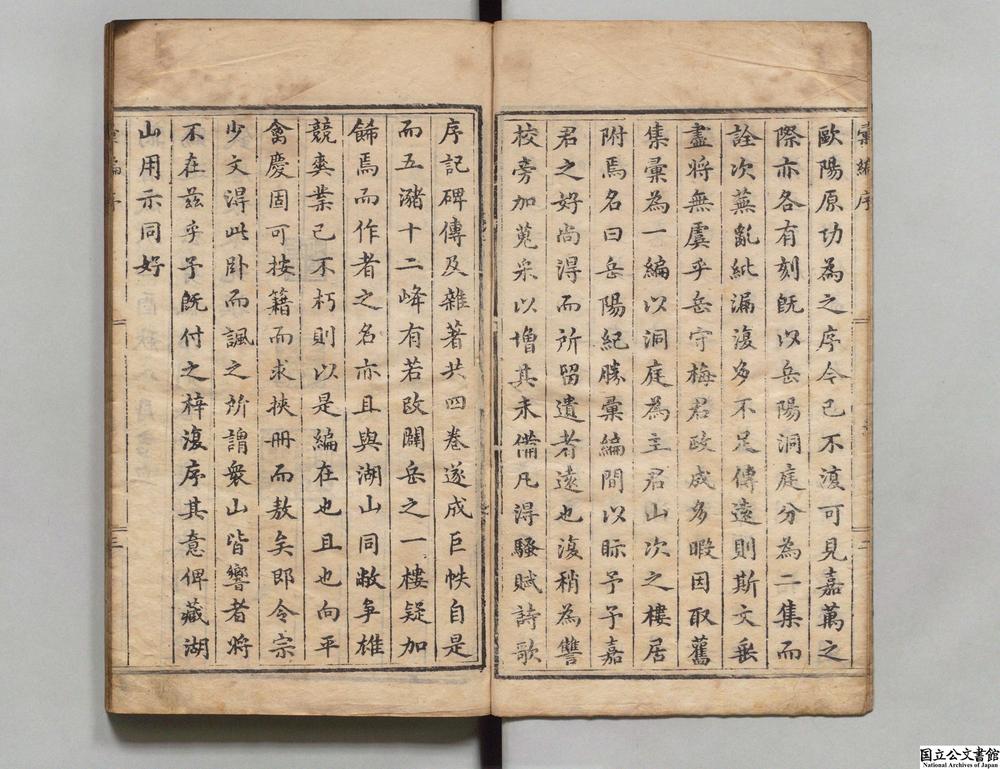 彙編序
二
歐陽原功為之序今已不復可見嘉萬之
際亦各有刻既以岳陽洞庭分為二集而
詮次蕪亂紕漏復多不足傳遠則斯文垂
盡將無虞乎岳守梅君政成多暇因取舊
集彙為一編以洞庭為主君山次之樓居
附焉名曰岳陽紀勝彙編間以眎予予嘉
君之好尚得而所留遺者遠也復稍為讐
校旁加蒐采以增其未備凡得騷賦詩歌
序記碑傳及雜著共四卷遂成巨帙自是
而五瀦十二峰有若改闢岳之一樓疑加
餙焉而作者之名亦且與湖山同敝爭雄
競爽業已不朽則以是編在也且也向平
禽慶固可按籍而求挾冊而敖矣即令宗
少文得此卧而諷之所謂眾山皆響者將
不在茲乎予既付之梓復序其意俾藏湖
山用示同好
彙編序
三
国立公文書館
National Archives of Japan